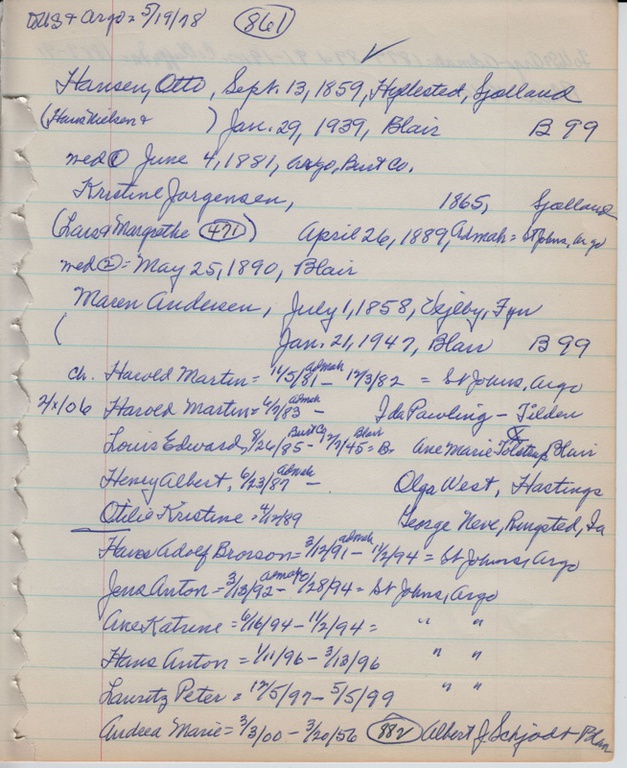 + Argo = 5/19/78 861
Hansen, Otto, Sept. 13, 1859, Hyllested, Sjælland
(Hans Nielsen + ) Jan. 29, 1939, Blair B 99
med ① June 4, 1881, Argo, Burt Co.
Kristine Jorgensen, 1865, Sjælland
(Lars + Margrethe 471) April 26, 1889, Admah = St Johns, Argo
med ② = May 25, 1890, Blair
Maren Andersen, July 1, 1858, Vejlby, Fyn
( Jan. 21, 1947, Blair B 99
ch. Harold Martin = 11/5/81 Admah - 12/3/82 = St Johns, Argo
2/x/06 Harold Martin = 6/7/83 Admah - Ida Pawling - Tilden
Louis Edward, 8/26/85 Burt Co - 12/7/45 Blair = B. Ane Marie Tolstrup, Blair
Henry Albert, 6/23/87 Admah - Olga West, Hastings
Otilie Kristine = 4/17/89 George Neve, Ringsted, Ia
Hans Adolf Brorson = 3/12/91 Admah - 1/2/94 = St Johns, Argo
Jens Anton = 3/13/92 Admah - /28/94 = St Johns, Argo
Ane Katrine = 6/16/94 - 11/2/94 = " "
Hans Anton = 1/11/96 - 3/13/96 " "
Lauritz Peter = 12/5/97 - 5/5/99 " "
Andrea Marie = 3/3/00 - 3/20/56 882 Albert J. Schjodt Blair